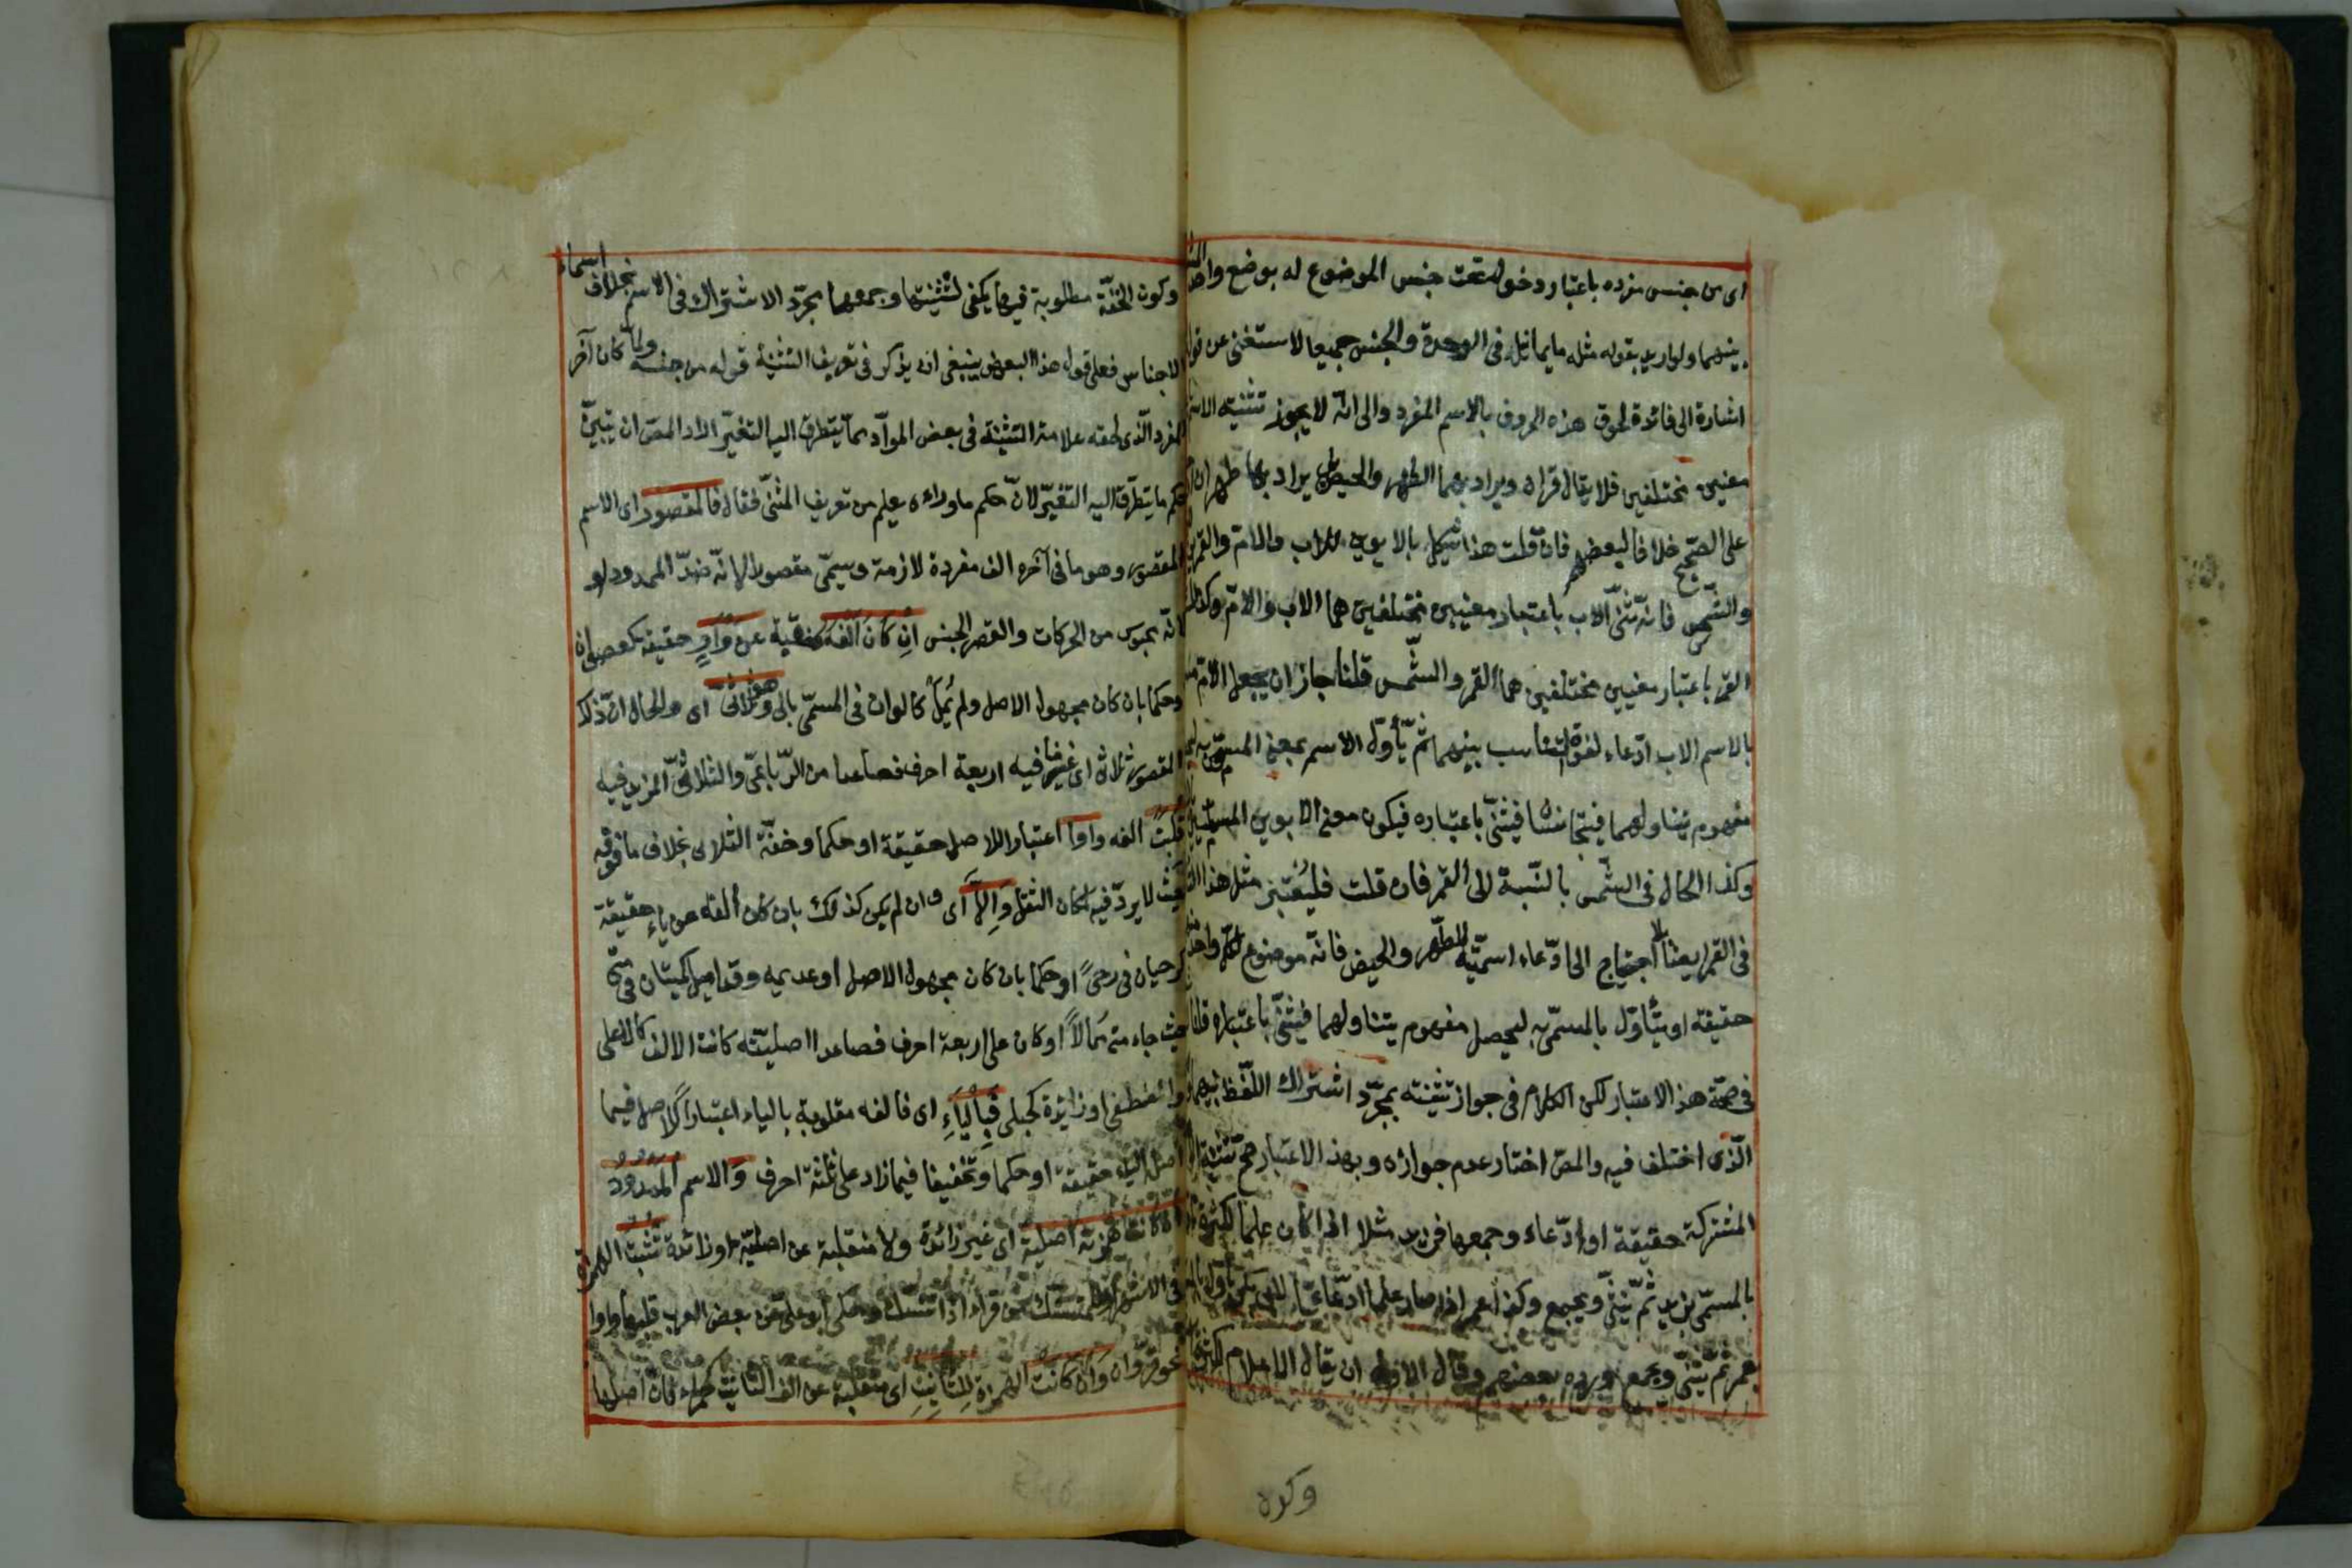 اى من جنس مفرده باعتبار دخولهما تحت جنس الموضوع له بوضع واحد
بينهما ولو اريد بقوله مثله ما يماثله فى الوحدة والجنس جميعا لاستغنى عن قوله
اشارة الى فائدة لحوق هذه الحروف بالاسم المفرد والى انّه لا يجوز تثنيته الاسم
معنيين مختلفين فلا يقال قرآن ويراد بهما الطهر والحيض بل يراد بهما طهران او
على الصّحيح خلافا لبعضهم فان قلت هذا يشكل بالابوين للاب والامّ والقمرين
والشّمس فانّه ثنّى الاب باعتبار معنيين مختلفين هما الاب والامّ وكذلك
القمر باعتبار معنيين مختلفين هما القمر والشّمس قلنا جاز ان يجعل الامّ مسمّى
بالاسم الاب ادّعاء لقوّة التناسب بينهما ثمّ يأوّل الاسم بمعنى المسمّى به
مفهوم يتناولهما فيتجانسا فيثنّى باعتباره فيكون معنى الابوين المسمّيين
وكذا الحال فى الشّمس بالنّسبة الى القمر فان قلت فليعتبر مثل هذا
فى القرء ايضا بلا احتياج الى ادّعاء اسميّته للطّهر والحيض فانّه موضوع لكلّ واحد
حقيقة او يتأوّل بالمسمّى به ليحصل مفهوم يتناولهما فيثنّى باعتباره قلنا
فى صحّة هذا الاعتبار لكن الكلام فى جواز تثنيته بمجرّد اشتراك اللّفظ بينهما
الّذى اختلف فيه والمصّ اختار عدم جوازه وبهذا الاعتبار صحّ تثنية
المشتركة حقيقة او ادّعاء وجمعها فزيد مثلا اذا كان علما لكثرة
بالمسمّى بزيد ثمّ يثنّى ويجمع وكذا عمر اذا صار علما ادّعائيّا لابى بكر يأوّل
بعمر ثمّ يثنّى ويجمع وردّه بعضهم وقال الاولى ان يقال الاعلام لكثرتها
وكون
وكون الخفّة مطلوبة فيها يكفى لتثنيتها وجمعها مجرّد الاشتراك فى الاسم بخلاف اسماء
الاجناس فعلى قول هذا البعض ينبغى ان يذكر فى تعريف التثنية قوله من جنسه ولمّا كان آخر
المفرد الّذى لحقه علامة التثنية فى بعض الموادّ ممّا يتطرق اليه التغيّر اراد المصّ ان يبيّن
حكم ما يتطرّق اليه التغيّر لانّ حكم ما وراءه يعلم من تعريف المثنّى فقال فالمقصور اى الاسم
المقصور وهو ما فى آخره الف مفردة لازمة وسمّى مقصورا لانّه ضدّ الممدود او
لانّه محبوس من الحركات والقصر الحبس ان كان الفه منقلبة عن واو حقيقة كعصى
وحكما بان كان مجهول الاصل ولم يمل كالوان فى المسمّى بالى وهو ثلاثىّ اى والحال انّ ذلك
المقصور ثلاثى اى غير ما فيه اربعة احرف فصاعدا من الرّباعىّ والثلاثىّ المزيد فيه
قلبت الفه واوا اعتبارا للاصل حقيقة او حكما وخفّة الثلاثى بخلاف ما فوقه
حيث لا يردّ فيه لمكان الثقل والّا اى وان لم يكن كذلك بان كان الفه عن ياء حقيقة
كرحيان فى رحى او حكما بان كان مجهول الاصل او عديمه وقد اميل كمتيان فى متى
حيث جاء متى ممالا او كان على اربعة احرف فصاعدا اصليّة كانت الالف كالاعلى
والمصطفى او زائدة كحبلى فبالياء اى فالفه مقلوبة بالياء اعتبارا للاصل فيما
اصله الياء حقيقة او حكما وتخفيفا فيما زاد على ثلثة احرف والاسم الممدود
ان كانت همزته اصليّة اى غير زائدة ولا منقلبة عن اصليّة او زائدة تثبت الهمزة
فى الاشهر قرّاء اذا تنسّك وحكى ابو على عن بعض العرب قلبها واوا
نحو قرّاوان وان كانت الهمزة للتأنيث اى منقلبة عن الف التأنيث كحمراء فانّ اصلها